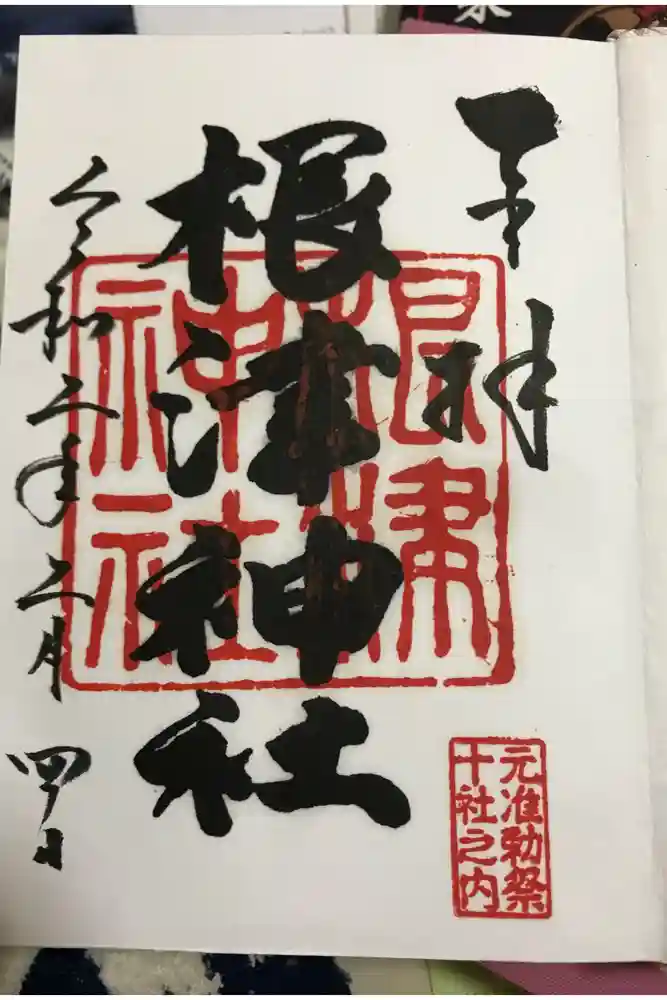 奉拝
根津神社
令和二年二月四日
根津
神社
元准勅祭
十社之内